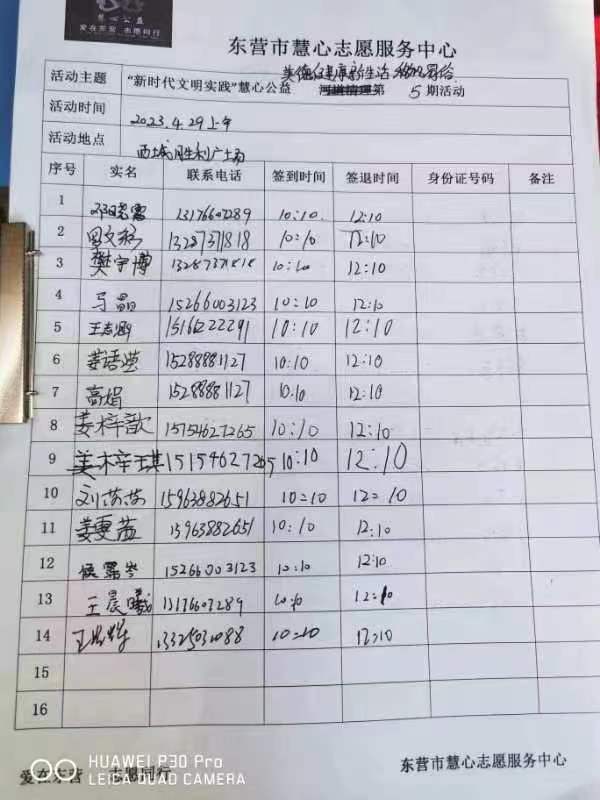 慧心公益
爱在东营 志愿同行
东营市慧心志愿服务中心
健康新生活
活动主题 "新时代文明实践"慧心公益 河道清理第 5 期活动
活动时间 2023.4.29上午
活动地点 西城胜利广场
序号 实名 联系电话 签到时间 签退时间 身份证号码 备注
1 13176607289 10:10 12:10
2 13287371818 10:10 12:10
3 樊宇博 13287371818 10:10 12:10
4 马晶 15266003123 10:10 12:10
5 15166222291 10:10 12:10
6 姜语萱 15288881127 10:10 12:10
7 高娟 15288881127 10:10 12:10
8 姜梓歆 15154627265 10:10 12:10
9 姜梓琪 15154627265 10:10 12:10
10 刘苏苏 15963882651 10:10 12:10
11 15963882651 10:10 12:10
12 15266003123 10:10 12:10
13 王晨曦 13176607289 10:10 12:10
14 10:10 12:10
15
16
爱在东营 志愿同行 东营市慧心志愿服务中心
HUAWEI P30 Pro
LEICA QUAD CAMERA